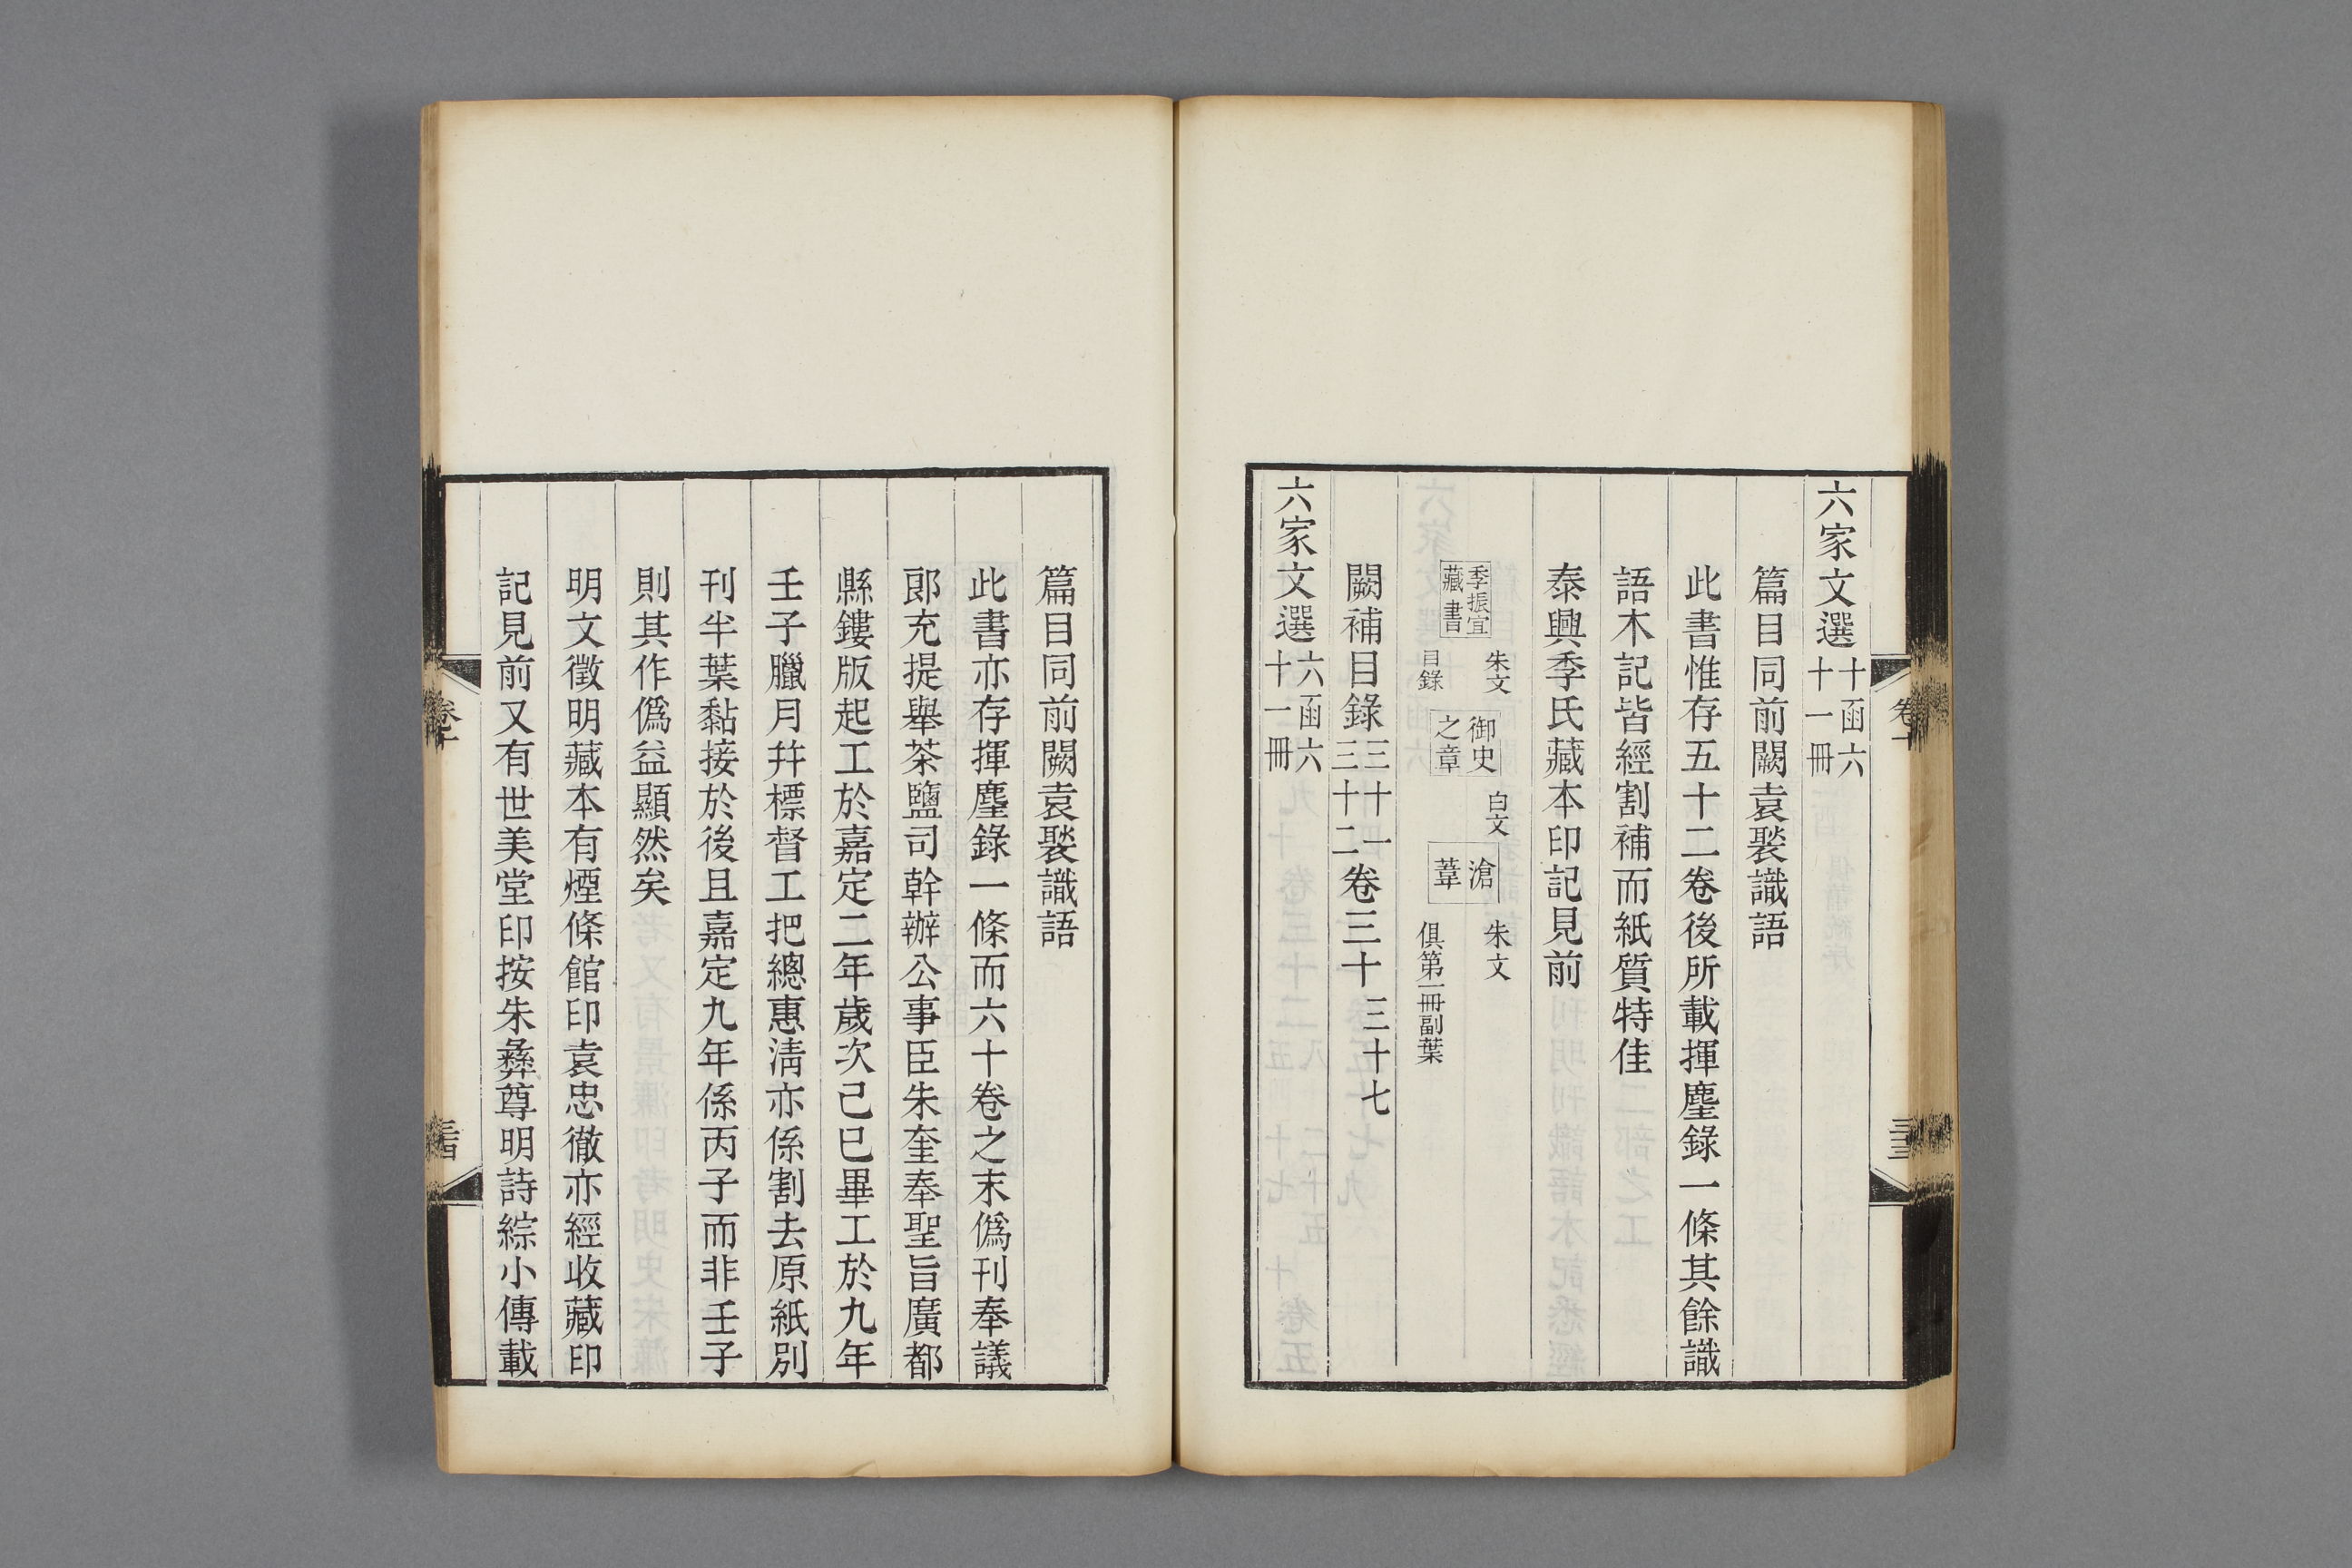 六家文選十函六十一冊
篇目同前闕袁褧識語
此書惟存五十二卷後所載揮麈錄一條其餘識
語木記皆經割補而紙質特佳
泰興季氏藏本印記見前
季振宜藏書 朱文 目錄 御史之章 白文 滄葦 朱文 俱第一冊副葉
闕補目錄三十一三十二卷三十三十七
六家文選六函六十一冊
卷十
三十三
篇目同前闕袁褧識語
此書亦存揮麈錄一條而六十卷之末僞刊奉議
郎充提舉茶鹽司幹辦公事臣朱奎奉聖旨廣都
縣鏤版起工於嘉定二年歲次己巳畢工於九年
壬子臘月幷標督工把總惠淸亦係割去原紙別
刊半葉黏接於後且嘉定九年係丙子而非壬子
則其作僞益顯然矣
明文徵明藏本有煙條館印袁忠徹亦經收藏印
記見前又有世美堂印按朱彝尊明詩綜小傳載
卷十
三十四